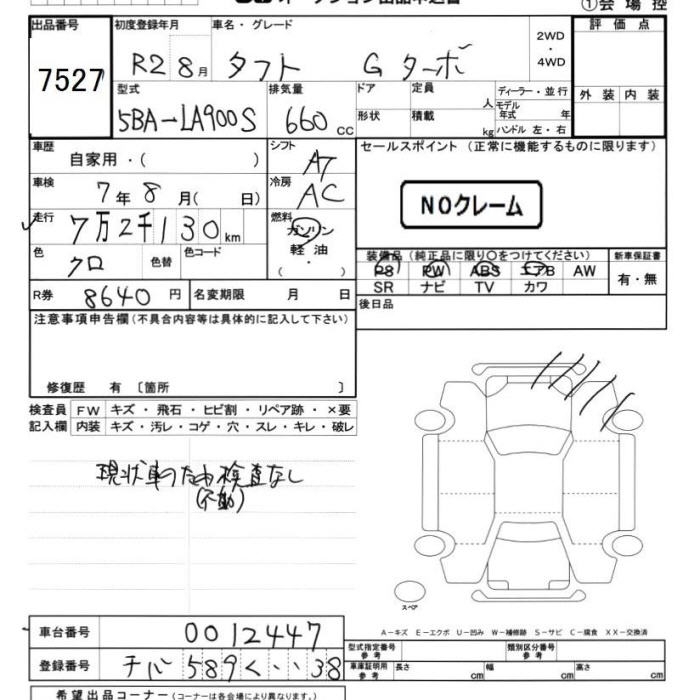 ①会場控
出品番号 初度登録年月 車名・グレード 2WD・4WD 評価点
7527 R2 8月 タフト Gターボ
型式 排気量 ドア 定員 人 ディーラー・並行 外装 内装
5BA-LA900S 660cc 形状 積載 kg モデル年式 年 ハンドル 左・右
車歴 自家用・( ) シフト AT セールスポイント(正常に機能するものに限ります)
車検 7年8月( 日) 冷房 AC NOクレーム
走行 7万2千130km 燃料 ガソリン・軽油 ( ・ )
色 クロ 色替 色コード 装備品(純正品に限り○をつけてください) 新車保証書
PS PW ABS エアB AW 有・無
SR ナビ TV カワ
R券 8640円 名変期限 月 日 後日品
注意事項申告欄(不具合内容等は具体的に記入して下さい)
修復歴 有 〔箇所 〕
検査員 FW キズ・飛石・ヒビ割・リペア跡・×要
記入欄 内装 キズ・汚レ・コゲ・穴・スレ・キレ・破レ
現状車のため検査なし
(不動)
スペア
A-キズ E-エクボ U-凹み W-補修跡 S-サビ C-腐食 XX-交換済
車台番号 0012447 型式指定番号 参考 類別区分番号 参考
登録番号 チバ 589 く ・・38 車庫証明用 参考 長さ cm 幅 cm 高さ cm
希望出品コーナー(コーナーは各会場により異なります。)